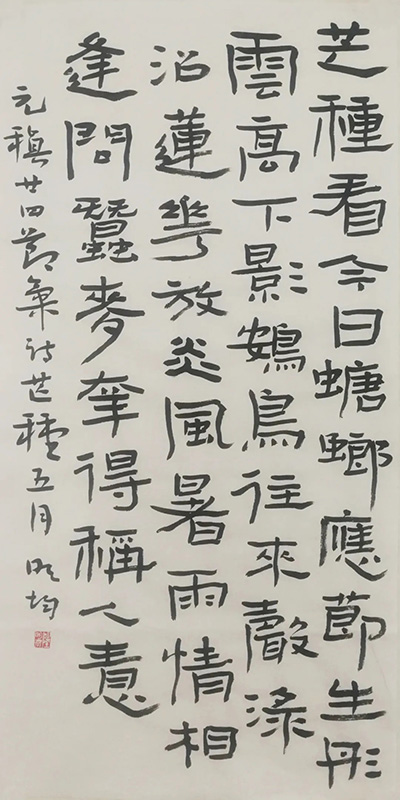 芒種看今日螗螂應節生彤
雲高下影鴳鳥往來聲淥
沼蓮華放炎風暑雨情相
逢問蠶麥幸得稱人意
元稹廿四節氣詩芒種五月 明均